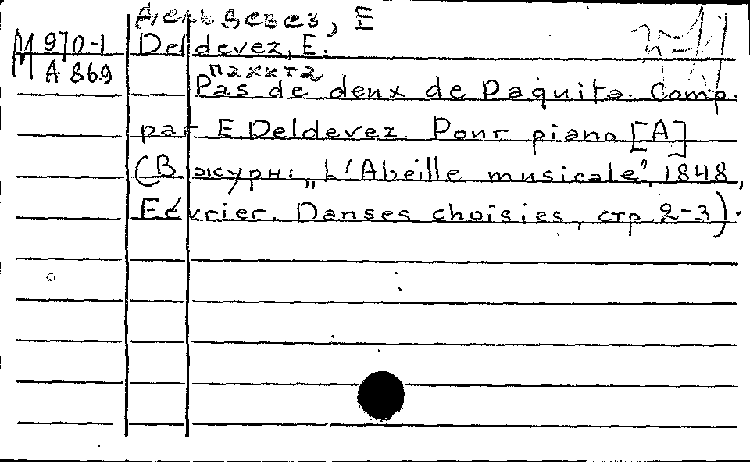 Дельвевез, E
M 970-1 Deldevez, E.
A 869
Пахита
Pas de deux de Paquita. Comp.
par E. Deldevez. Pour piano [A]
(В журн: „L'Abeille musicale", 1848,
Février. Danses choisies, стр 2-3).